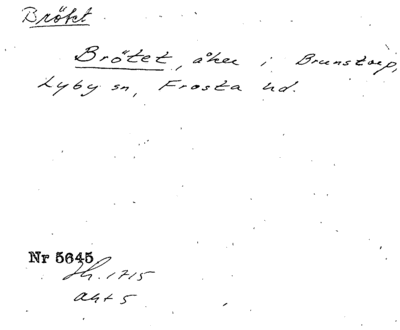 Brötet
Brötet, åker i Brunstorp,
Lyby sn, Frosta hd.
Nr 5645
Sk. 1715
akt 5